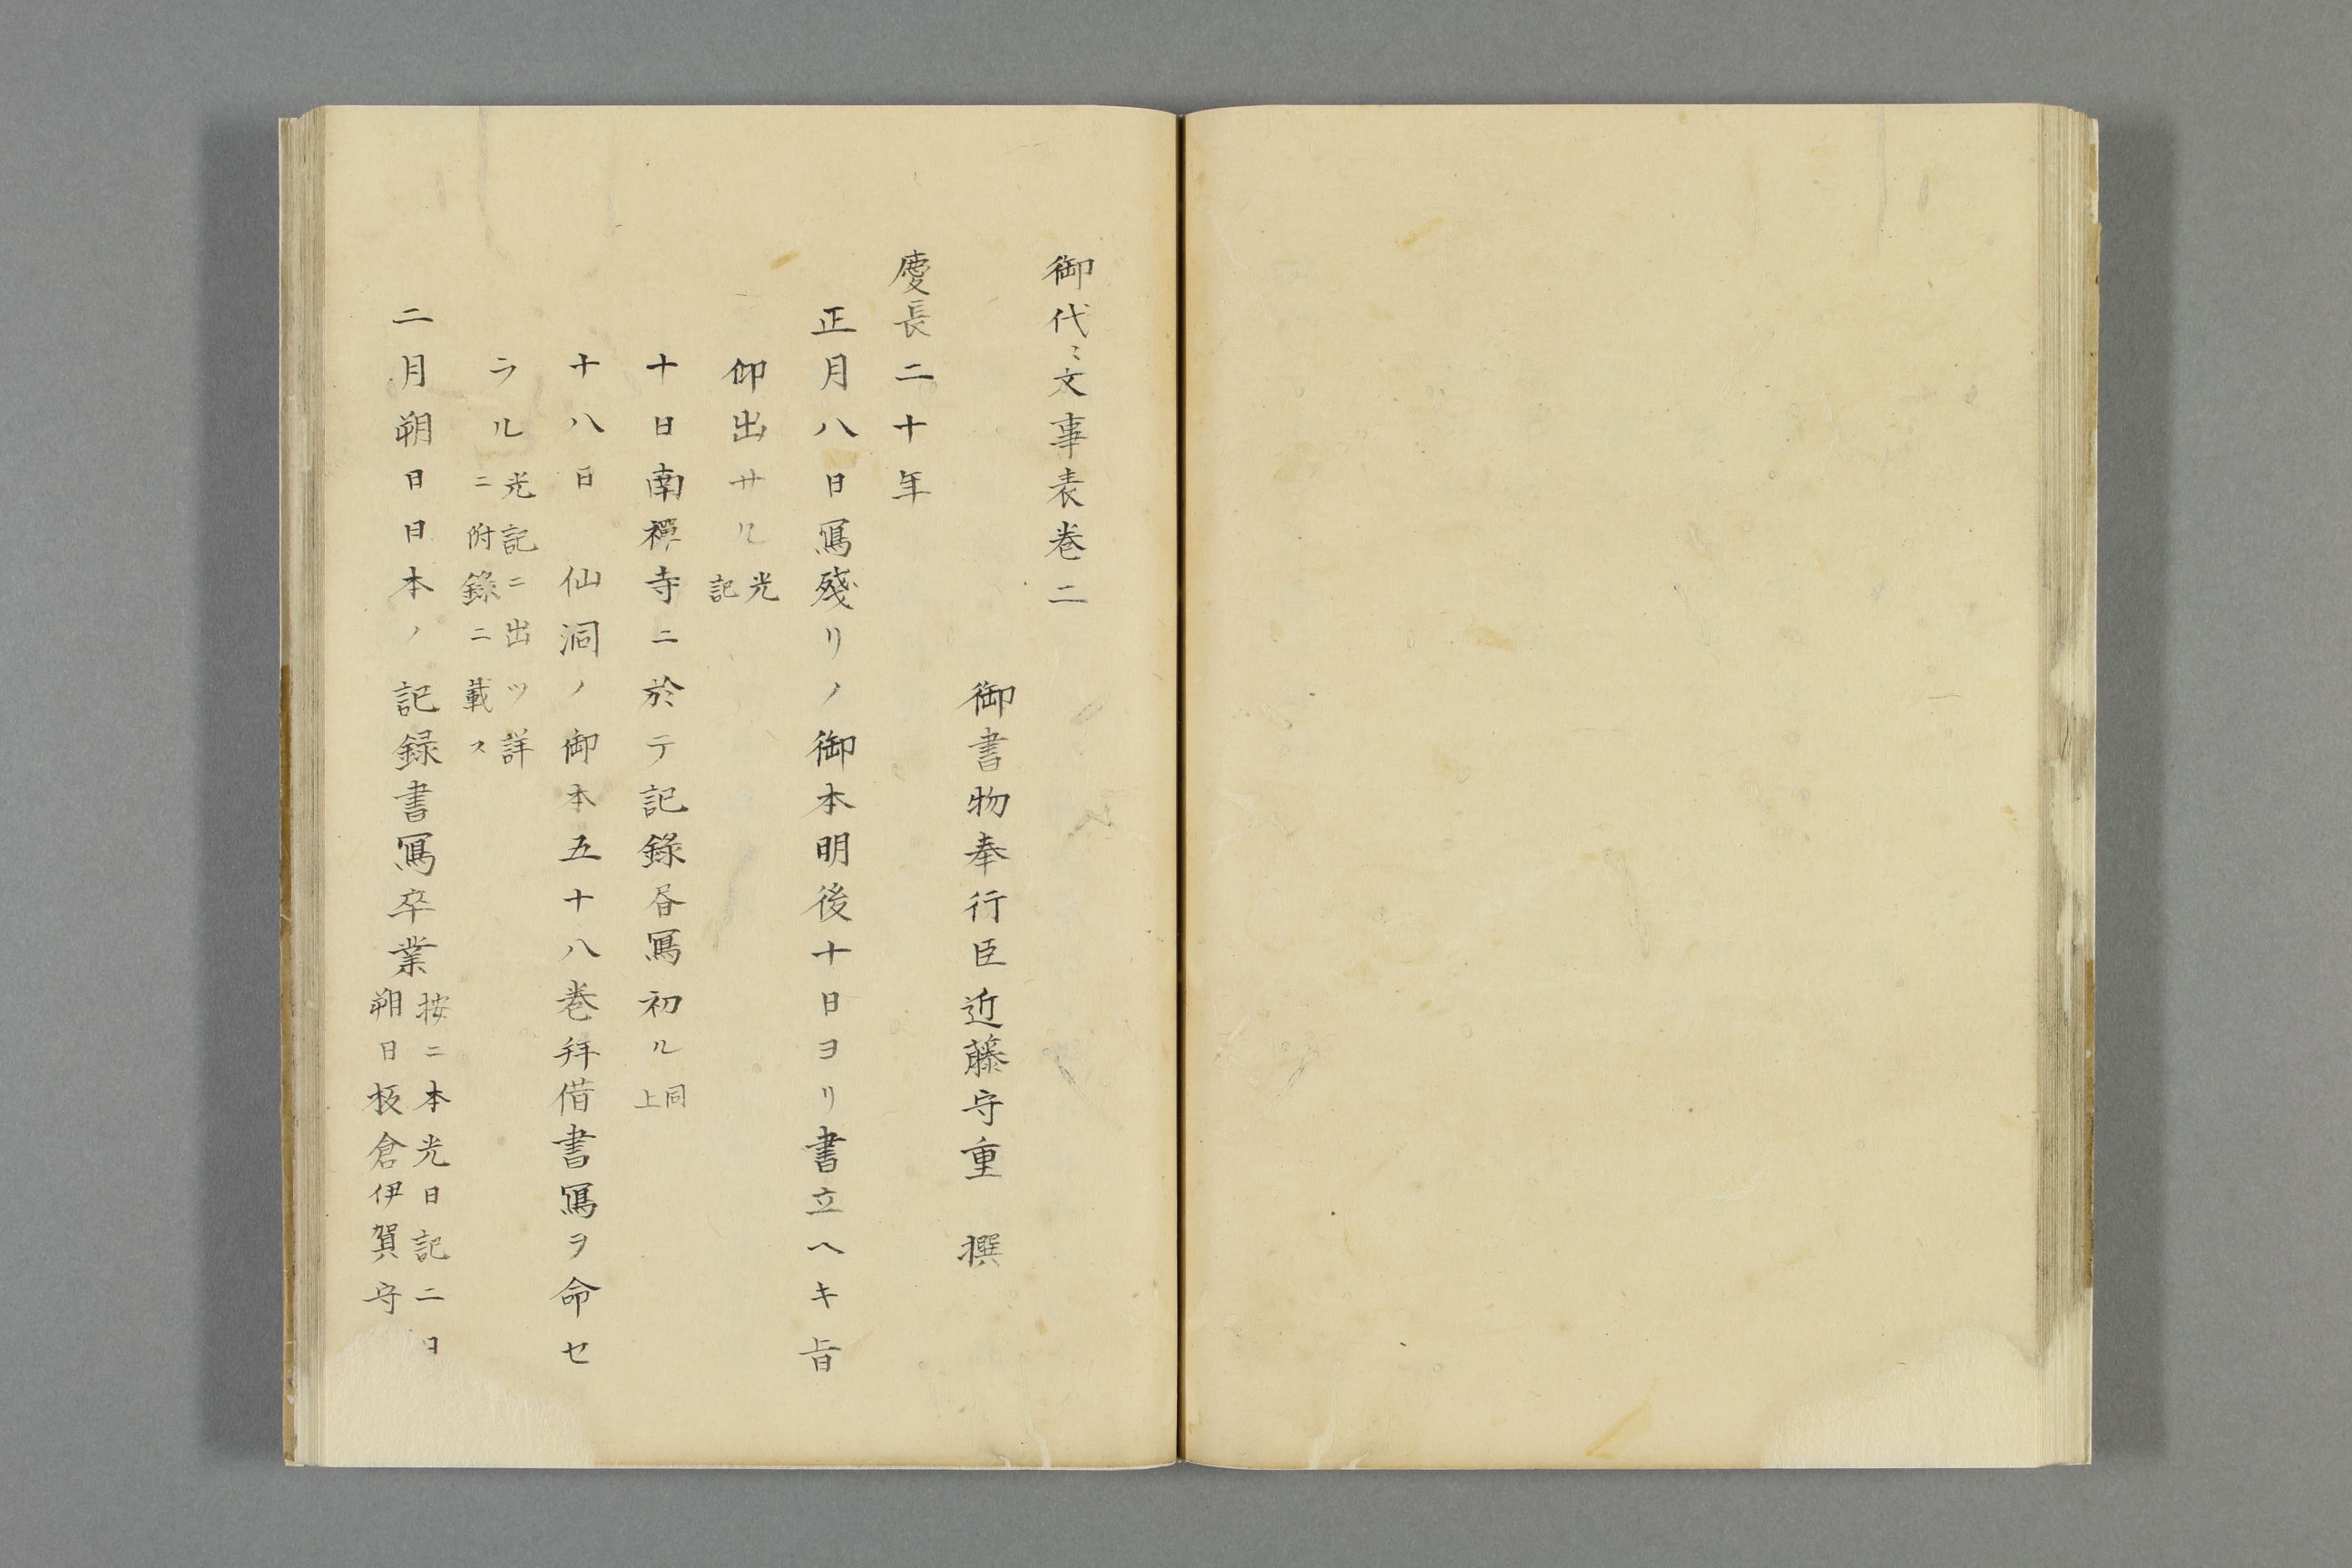 御代〻文事表巻二
御書物奉行臣近藤守重 撰
慶長二十年
正月八日寫殘リノ御本明後十日ヨリ書立ヘキ旨
仰出サル光
記
十日南禪寺ニ於テ記錄昏寫初ル同
上
十八日 仙洞ノ御本五十八巻拜借書寫ヲ命セ
ラル光記ニ出ツ詳
ニ附錄ニ載ス
二月朔日日本ノ記録書寫卒業按ニ本光日記二
朔日板倉伊賀守